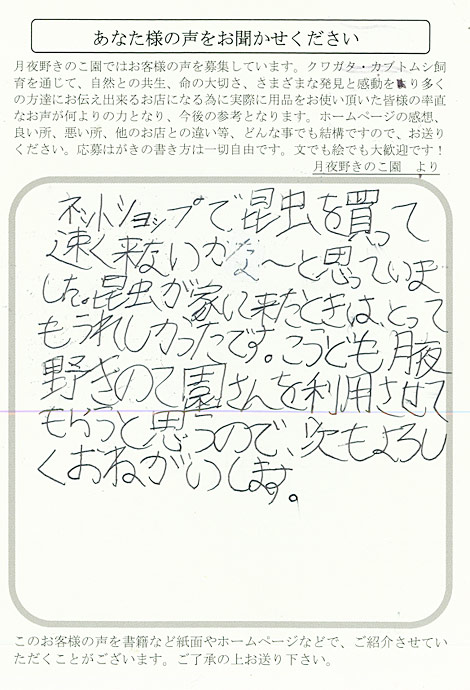 あなた様の声をお聞かせください
月夜野きのこ園ではお客様の声を募集しています。クワガタ・カブトムシ飼
育を通じて、自然との共生、命の大切さ、さまざまな発見と感動を り多く
の方達にお伝え出来るお店になる為に実際に用品をお使い頂いた皆様の率直
なお声が何よりの力となり、今後の参考となります。ホームページの感想、
良い所、悪い所、他のお店との違い等、どんな事でも結構ですので、お送り
ください。応募はがきの書き方は一切自由です。文でも絵でも大歓迎です！
月夜野きのこ園 より
ネットショップで昆虫を買って
速く来ないかな〜と思っていま
した。昆虫が家に来たときは、とって
もうれしかったです。こうども月夜
野きのて園さんを利用させて
もらうと思うので、次もよろし
くおねがいします。
このお客様の声を書籍など紙面やホームページなどで、ご紹介させてい
ただくことがございます。ご了承の上お送り下さい。